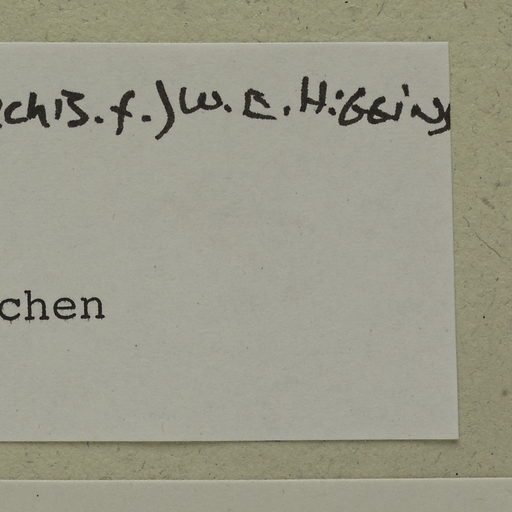 chb.f.) W. E. Higgins
chen